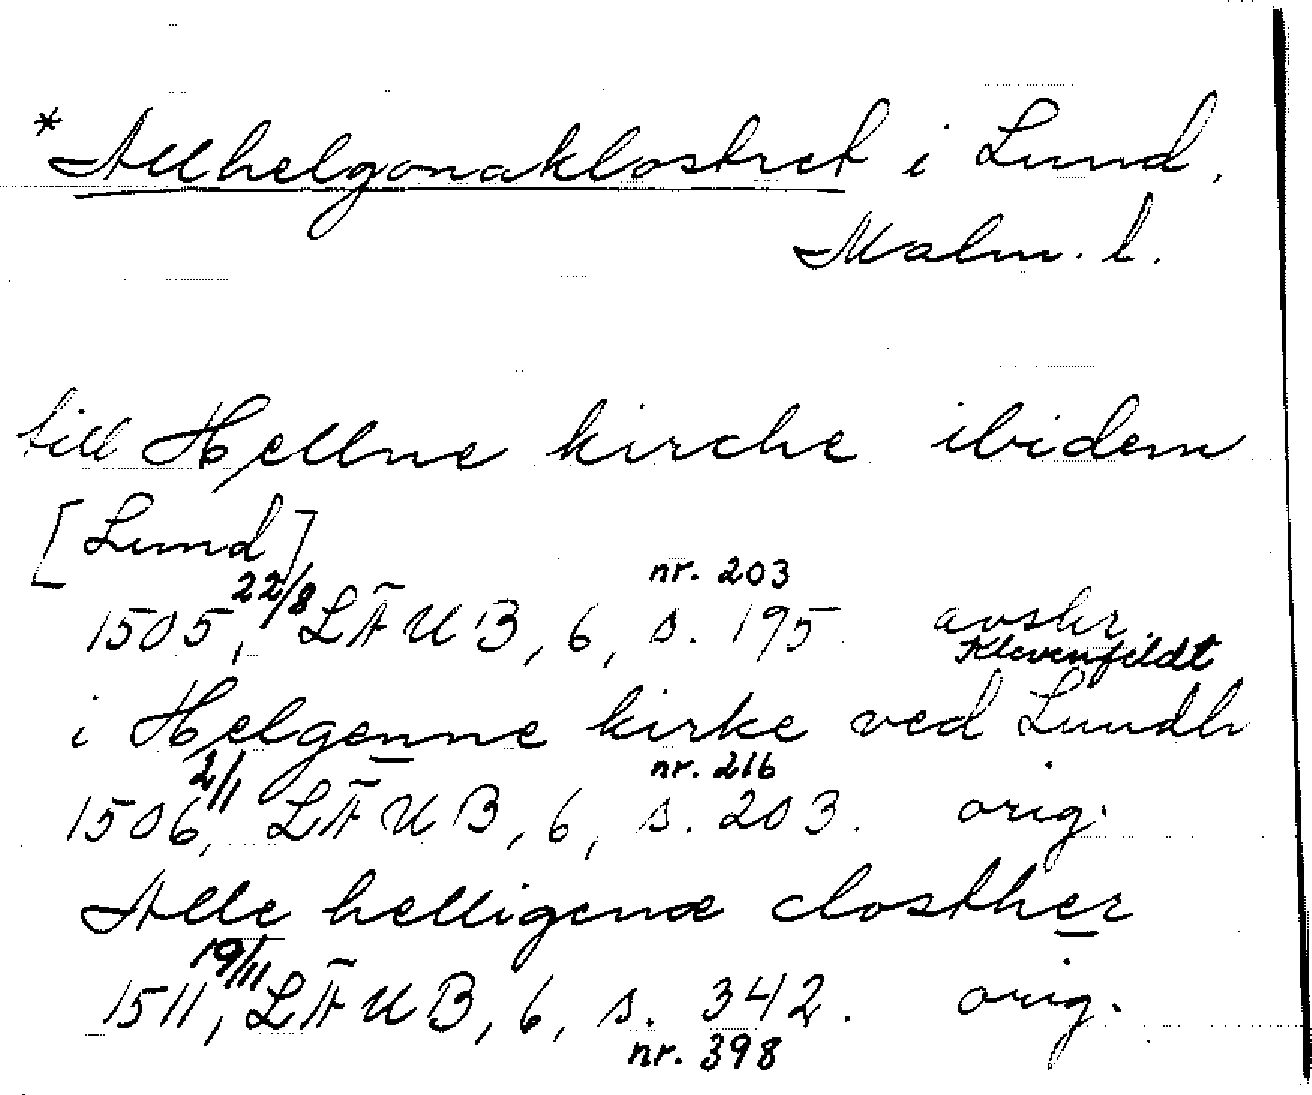 *Allhelgonaklostret i Lund,
Malm. l.
till Hellne kirche ibidem
[Lund]
1505, 22/8 LÄUB, 6, s. 195 nr. 203 avskr. Klevenfeldt
i Helgenne kirke ved Lundh
1506, 2/1 LÄUB, 6, s. 203. nr. 216 orig.
Alle helligenæ closther
1511, 19/11 LÄUB, 6, s. 342. orig.
nr. 398